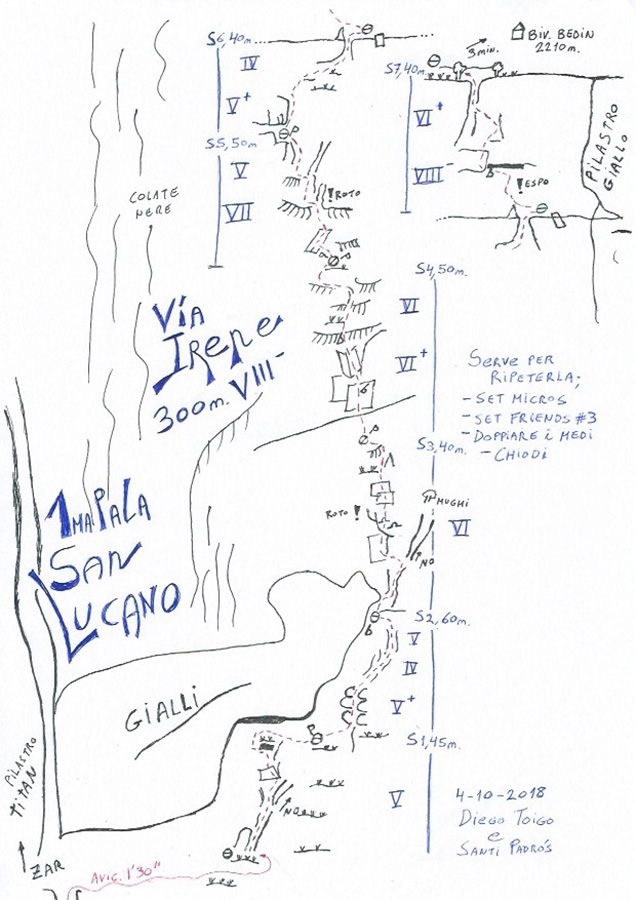 S6,40m.
IV
V+
S5,50m
V
VII
P
!ROTO
3 min.
BIV. BEDIN
2210m.
S7,40m.
VI+
VIII-
!ESPO
PILASTRO
GIALLO
COLATE
NERE
VíA
IRENE
300m. VIII-
S4,50m.
VI
VI+
SERVE PER
RIPETERLA;
- SET MICROS
- SET FRIENDS #3
- DOPPIARE i MEDI
- CHIODI
S3,40m.
P
MUGHI
ROTO !
VI
NO
1MA PALA
SAN
LUCANO
S2,60m.
V
IV
V+
GIALLI
P
S1,45m.
V
NO
4-10-2018
DIEGO TOIGO
e
SANTI PADRÓS
PILASTRO
TITAN
ZAR
AVIC. 1'30"